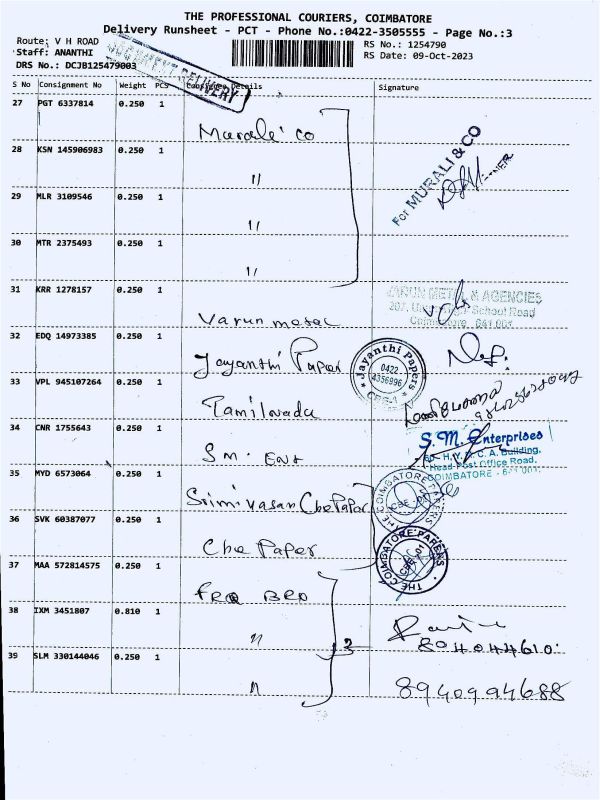 THE PROFESSIONAL COURIERS, COIMBATORE
Delivery Runsheet - PCT - Phone No.:0422-3505555 - Page No.:3
Route: V H ROAD
RS No.: 1254790
Staff: ANANTHI
RS Date: 09-Oct-2023
DRS No.: DCJB125479003
DELIVERY
S No Consignment No Weight PCS Details Signature
27 PGT 6337814 0.250 1
Murali Co
28 KSN 145906983 0.250 1
"
29 MLR 3109546 0.250 1
"
30 MTR 2375493 0.250 1
"
For MURALI & CO
31 KRR 1278157 0.250 1
Varun metal
VARUN METAL & AGENCIES
207, School Road
Coimbatore 641 001
32 EDQ 14973385 0.250 1
Jayanthi Paper
Jayanthi Papers
0422
4356996
CBE-1
33 VPL 945107264 0.250 1
Tamilnadu
34 CNR 1755643 0.250 1
S M. Ent
S. M. Enterprises
C. A. Building,
Head Post Office Road,
COIMBATORE - 641 001.
35 MYD 6573064 0.250 1
Srinivasan Cbe Paper
THE COIMBATORE PAPERS
36 SVK 60387077 0.250 1
Cbe Paper
THE COIMBATORE PAPERS
37 MAA 572814575 0.250 1
38 IXM 3451807 0.810 1
"
3
39 SLM 330144046 0.250 1
"
8940994688